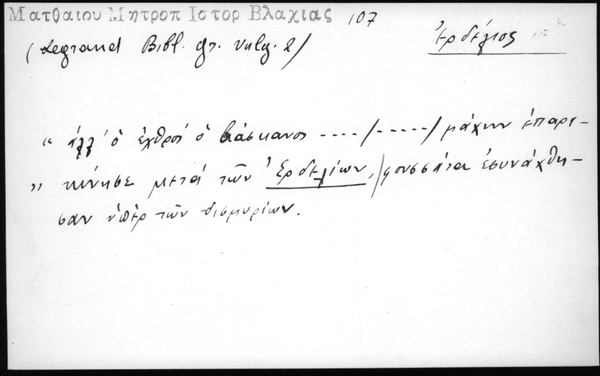 Ματθαιου Μητροπ Ιστορ Βλαχιας 107
(Legrand Bibl. gr. vulg. 2/
Ἐρδέλιος
“ ἀλλ' ὁ ἐχθρός ὁ βάσκανος ..../...../ μάχην ἐπαρε-
” κίνησε μετά τῶν Ἐρδελίων, /φουσσᾶτα ἐσυνάχθη-
σαν ὑπέρ τῶν δισμυρίων.